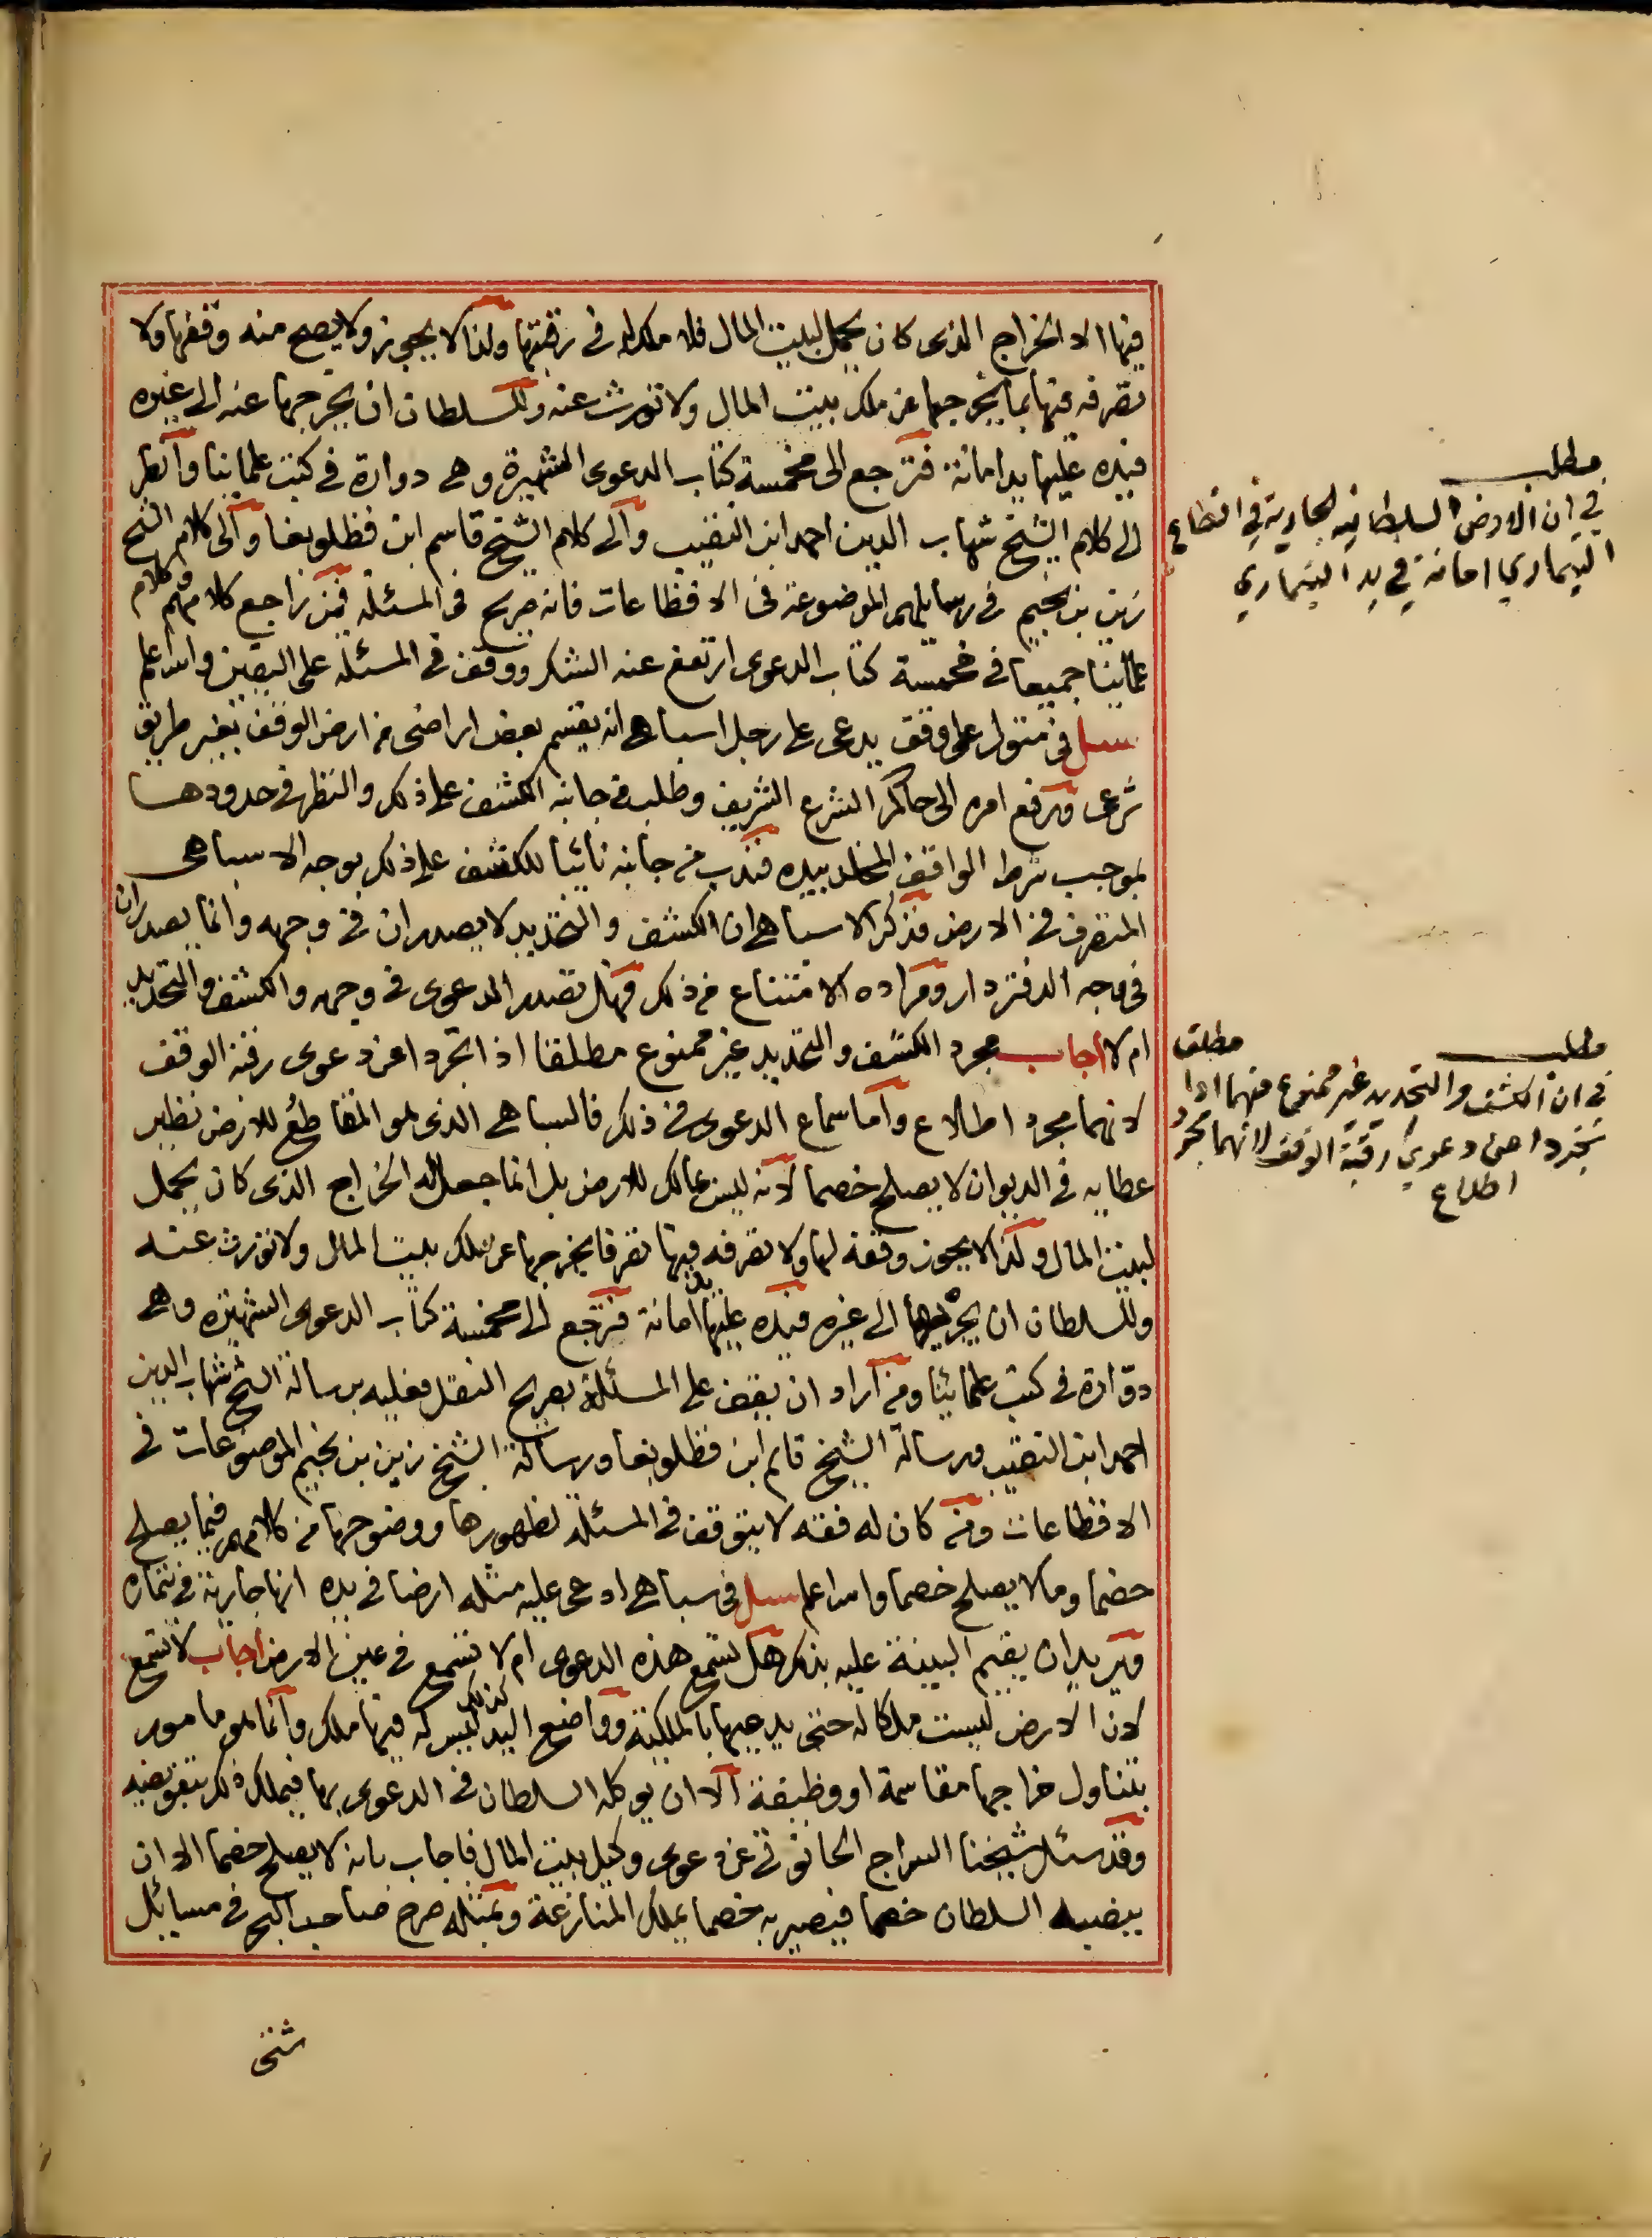 فيها الا الخراج الذى كان يحمل لبيت المال فلا ملك له فى رقبتها ولذا لا يجوز ولا يصح منه وقفها ولا
تصرفه فيها بما يخرجها عن ملك بيت المال ولا تورث عنه وللسلطان ان يخرجها عنه الى غيره
فيده عليها يد امانة فترجع الى مخمسة كتاب الدعوى الشهيرة وهى دوارة فى كتب علمائنا وانظر
الى كلام الشيخ شهاب الدين احمد ابن النقيب والى كلام الشيخ قاسم ابن قطلوبغا والى كلام الشيخ
زين بن نجيم فى رسايلهم الموضوعة فى الاقطاعات فانه صريح فى المسئلة فمن راجع كلامهم وكلام
علمائنا جميعا فى مخمسة كتاب الدعوى ارتفع عنه الشك ووقف فى المسئلة على اليقين والله اعلم
سئل فى متولى على وقف يدعى على رجل اسباهى انه يقسم بعض اراضى من ارض الوقف بغير طريق
شرعى ورفع امره الى حاكم الشرع الشريف وطلب من جانبه الكشف على ذلك والنظر فى حدودها
بموجب شرط الواقف المخلد بيده فندب من جانبه نائبا للكشف على ذلك بوجه الاسباهى
المتصرف فى الارض فذكر الاسباهى ان الكشف والتحديد لا يصدران فى وجهه وانما يصدران
فى وجه الدفتردار ومراده الامتناع من ذلك فهل تصدر الدعوى فى وجهه والكشف والتحديد
ام لا اجاب مجرد الكشف والتحديد غير ممنوع مطلقا اذا تجردا عن دعوى رقبة الوقف
لانهما مجرد اطلاع واما سماع الدعوى فى ذلك فالسباهى الذى هو المقاطع للارض نظير
عطايه فى الديوان لا يصلح خصما لانه ليس بمالك للارض بل انما جعل له الخراج الذى كان يحمل
لبيت المال ولذا لا يجوز وقفه لها ولا تصرفه فيها تصرفا يخرجها عن ملك بيت المال ولا تورث عنه
وللسلطان ان يخرجها الى غيره فيده عليها يد امانة فترجع الى مخمسة كتاب الدعوى الشهيرة وهى
دوارة فى كتب علمائنا ومن اراد ان يقف على المسئلة بصريح النقل فعليه برسالة الشيخ شهاب الدين
احمد ابن النقيب ورسالة الشيخ قاسم ابن قطلوبغا ورسالة الشيخ زين بن نجيم الموضوعات فى
الاقطاعات ومن كان له فقه لا يتوقف فى المسئلة لظهورها ووضوحها من كلامهم فيما يصلح
خصما وما لا يصلح خصما والله اعلم سئل فى سباهى ادعى عليه مثله ارضا فى يده انها جارية فى تيماره
ويريد ان يقيم البينة عليه بذلك هل تسمع هذه الدعوى ام لا تسمع فى عين الارض اجاب لا تسمع
لان الارض ليست ملكا له حتى يدعيها بالملكية وواضع اليد كذلك ليس له فيها ملك وانما هو مامور
بتناول خراجها مقاسمة او وظيفة الا ان يوكله السلطان فى الدعوى بها فيملك ذلك بتفويضه
وقد سئل شيخنا السراج الحانوتى عن دعوى وكيل بيت المال فاجاب بانه لا يصلح خصما الا ان
ينصبه السلطان خصما فيصير به خصما يملك المنازعة وبمثله صرح صاحب البحر فى مسايل
شتى
مطلب
فى ان الارض السلطانيه الجارية فى اقطاع
التيمارى امانة فى يد التيمارى
مطلب
فى ان الكشف والتحديد غير ممنوع منهما مطلقا اذا
تجردا عن دعوى رقبة الوقف لانهما مجرد
اطلاع